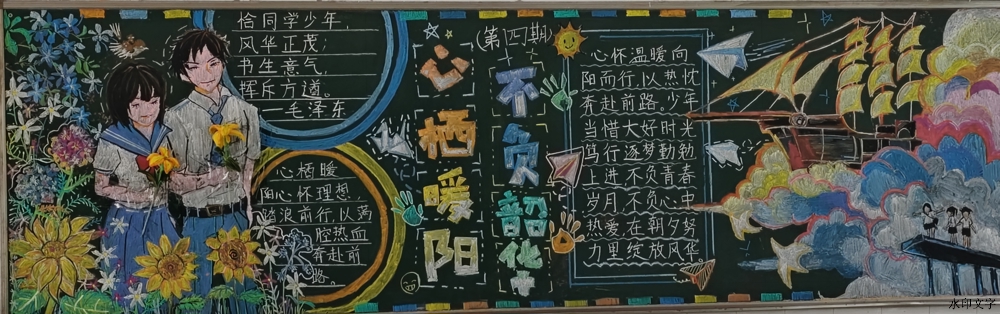 恰同学少年，
风华正茂；
书生意气，
挥斥方遒。
—毛泽东
心栖暖
阳心怀理想
踏浪前行以满
腔热血
奔赴前
路。
心栖暖阳
(第四期)
不负韶华
心怀温暖向
阳而行以热忱
奔赴前路.少年
当惜大好时光
笃行逐梦勤勉
上进不负青春
岁月不负心中
热爱.在朝夕努
力里绽放风华
水印文字